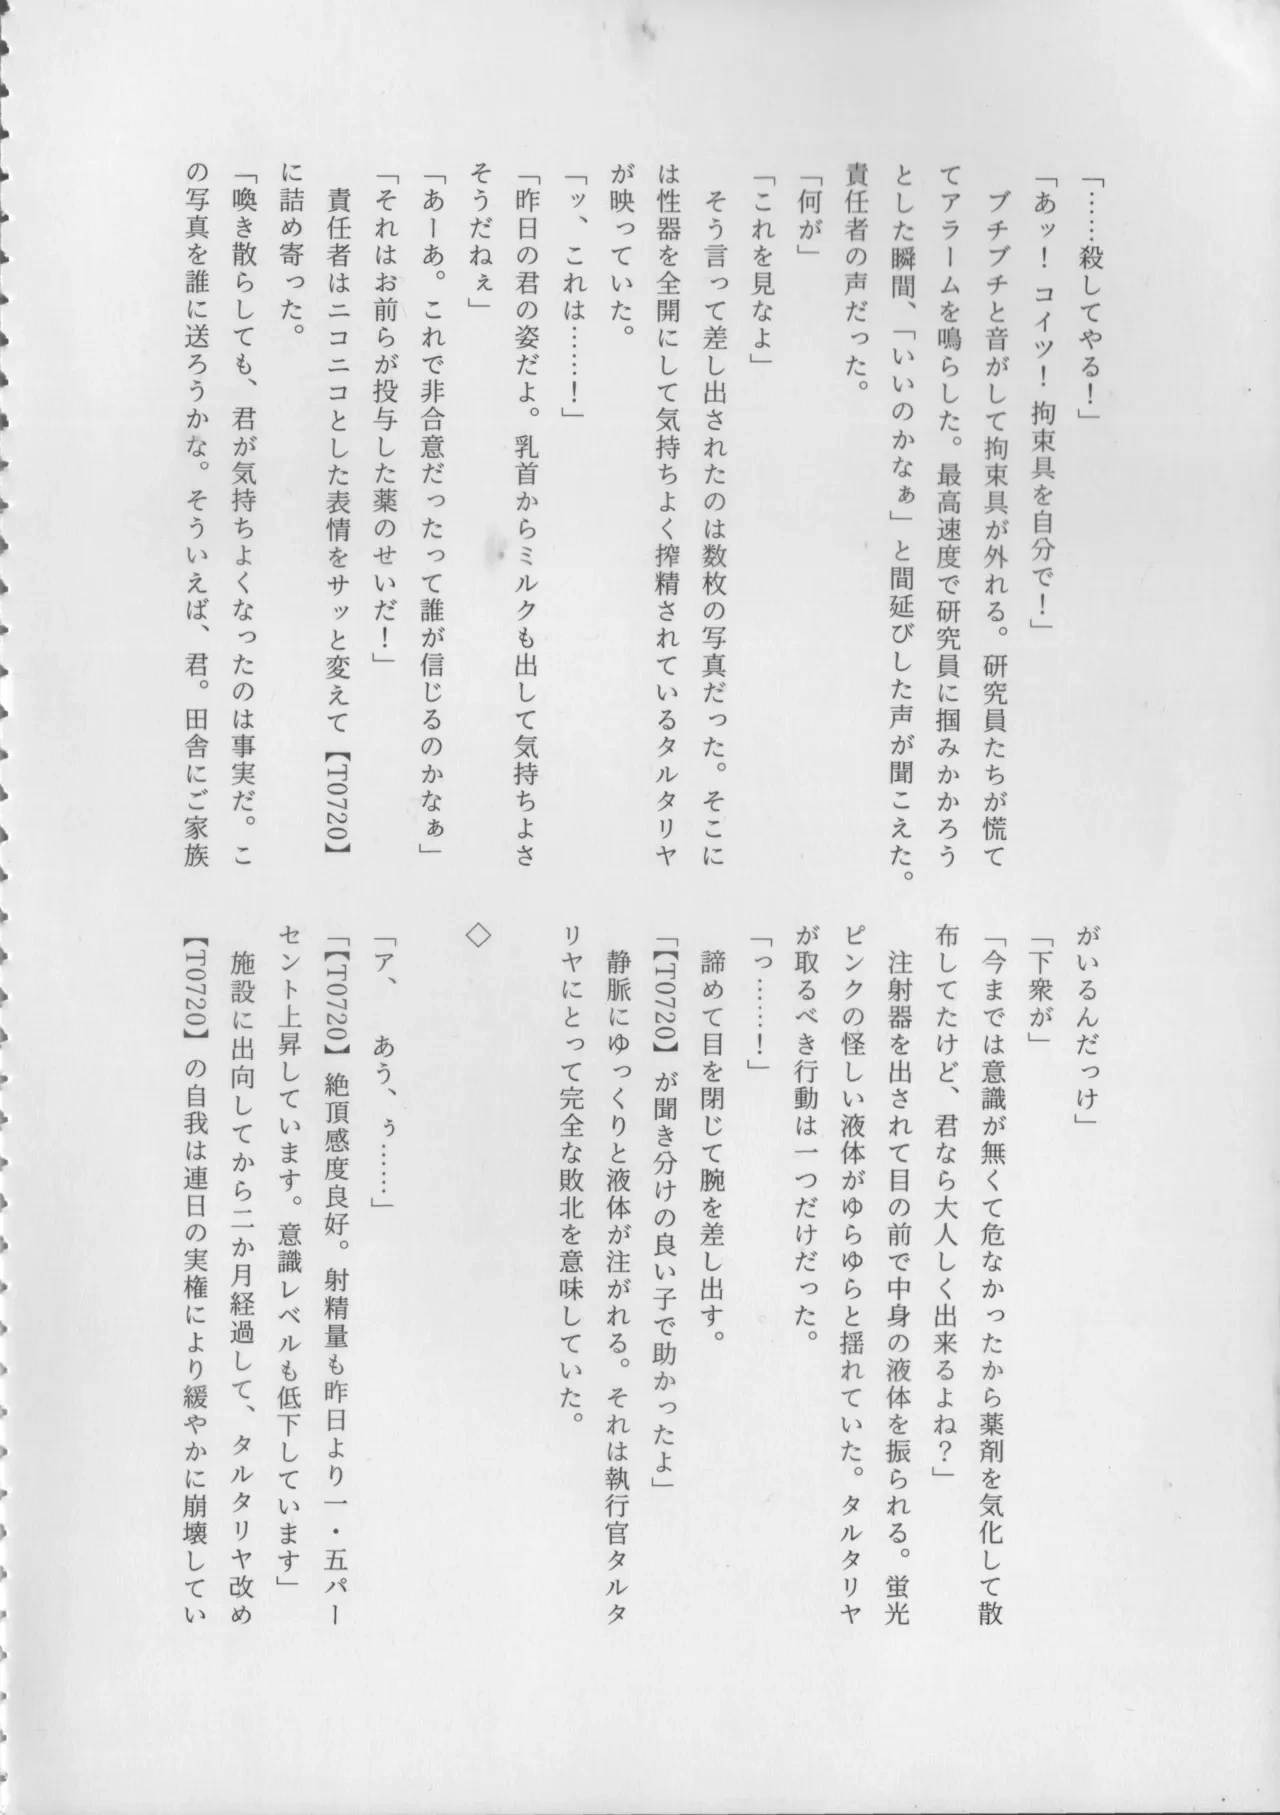 「……殺してやる！」
「あッ！コイツ！拘束具を自分で！」
　ブチブチと音がして拘束具が外れる。研究員たちが慌て
てアラームを鳴らした。最高速度で研究員に掴みかかろう
とした瞬間、「いいのかなぁ」と間延びした声が聞こえた。
責任者の声だった。
「何が」
「これを見なよ」
　そう言って差し出されたのは数枚の写真だった。そこに
は性器を全開にして気持ちよく搾精されているタルタリヤ
が映っていた。
「ッ、これは……！」
「昨日の君の姿だよ。乳首からミルクも出して気持ちよさ
そうだねぇ」
「あーあ。これで非合意だったって誰が信じるのかなぁ」
「それはお前らが投与した薬のせいだ！」
　責任者はニコニコとした表情をサッと変えて【T0720】
に詰め寄った。
「喚き散らしても、君が気持ちよくなったのは事実だ。こ
の写真を誰に送ろうかな。そういえば、君。田舎にご家族
がいるんだっけ」
「下衆が」
「今までは意識が無くて危なかったから薬剤を気化して散
布してたけど、君なら大人しく出来るよね？」
　注射器を出されて目の前で中身の液体を振られる。蛍光
ピンクの怪しい液体がゆらゆらと揺れていた。タルタリヤ
が取るべき行動は一つだけだった。
「っ……！」
　諦めて目を閉じて腕を差し出す。
「【T0720】が聞き分けの良い子で助かったよ」
　静脈にゆっくりと液体が注がれる。それは執行官タルタ
リヤにとって完全な敗北を意味していた。
◇
「ア、　あう、ぅ……」
「【T0720】絶頂感度良好。射精量も昨日より一・五パー
セント上昇しています。意識レベルも低下しています」
　施設に出向してから二か月経過して、タルタリヤ改め
【T0720】の自我は連日の実権により緩やかに崩壊してい